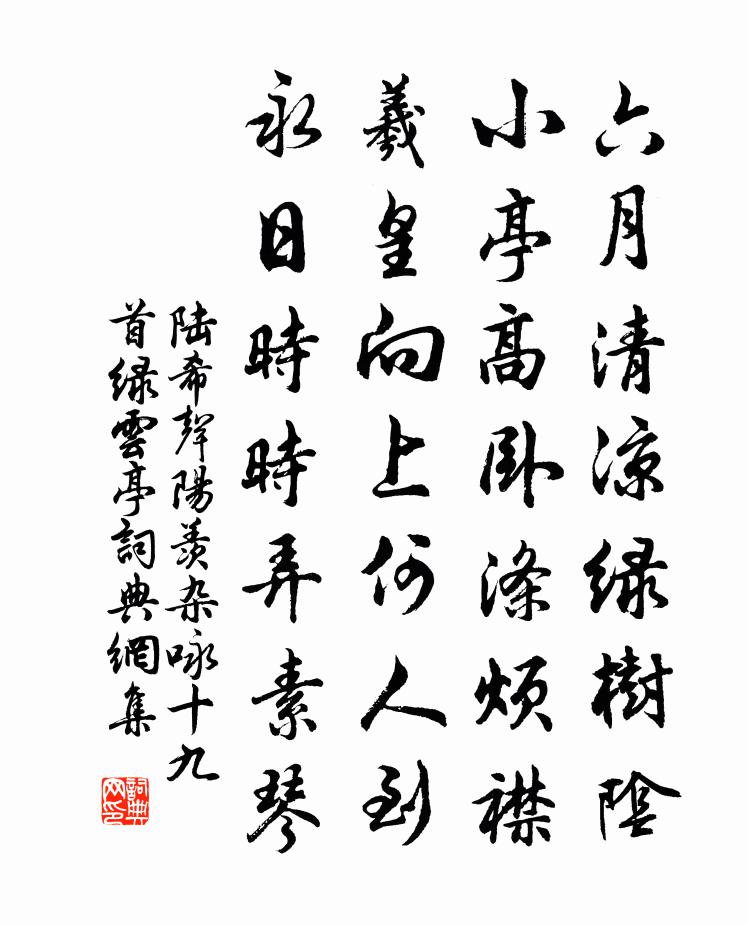 六月清凉緑樹陰
小亭高卧滌煩襟
羲皇向上何人到
永日時時弄素琴
陸希聲陽羨杂咏十九
首緑雲亭詞典網集
詞典
网印